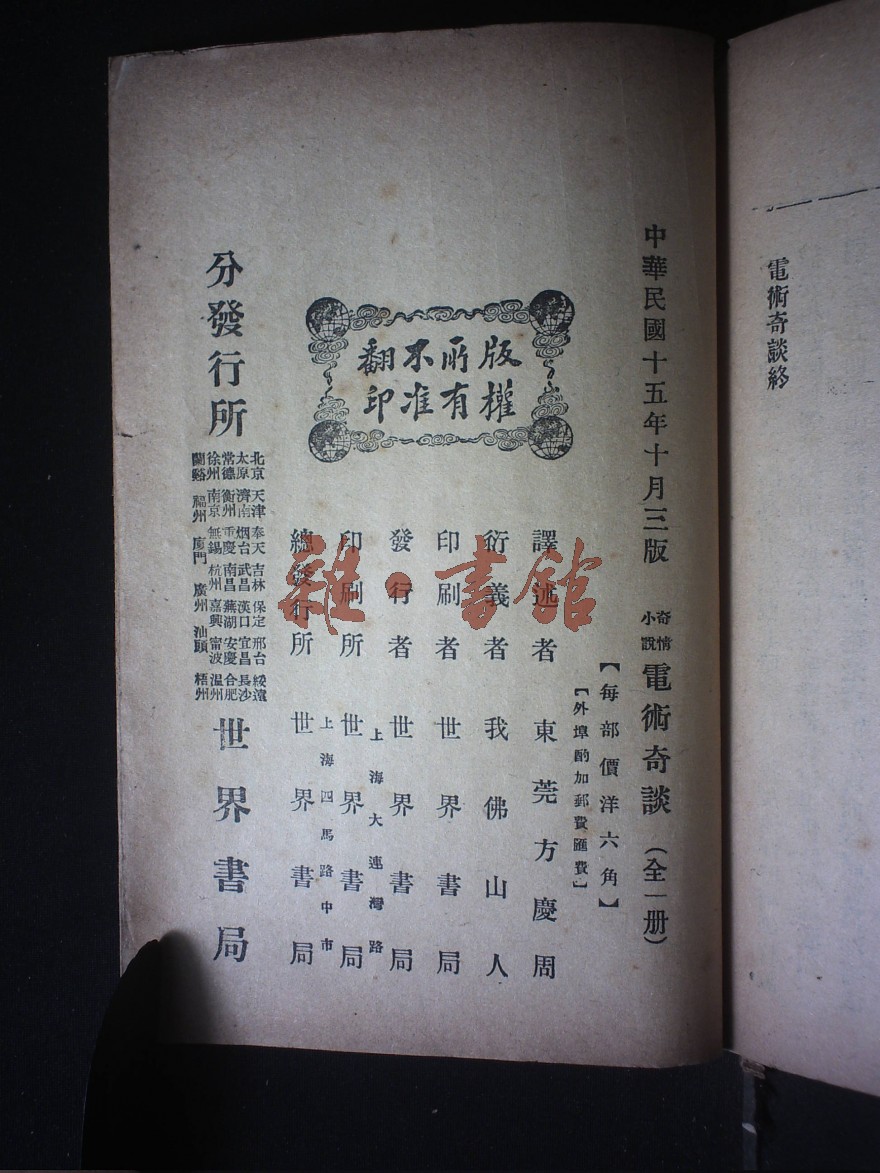 電術奇談終
中華民國十五年十月三版
奇情小說 電術奇談（全一册）
【每部價洋六角】
【外埠酌加郵費匯費】
版權所有
不准翻印
譯述者 東莞方慶周
衍義者 我佛山人
印刷者 世界書局
發行者 世界書局
上海大連灣路
印刷所 世界書局
上海四馬路中市
總發行所 世界書局
分發行所
北京 天津 奉天 吉林 保定 邢台 綏遠
太原 濟南 烟台 武昌 漢口 宜昌 長沙
常德 衡州 重慶 南昌 蕪湖 安慶 合肥
徐州 南京 無錫 杭州 嘉興 甯波 温州
蘭谿 福州 廈門 廣州 汕頭 梧州
世界書局
雜·書館